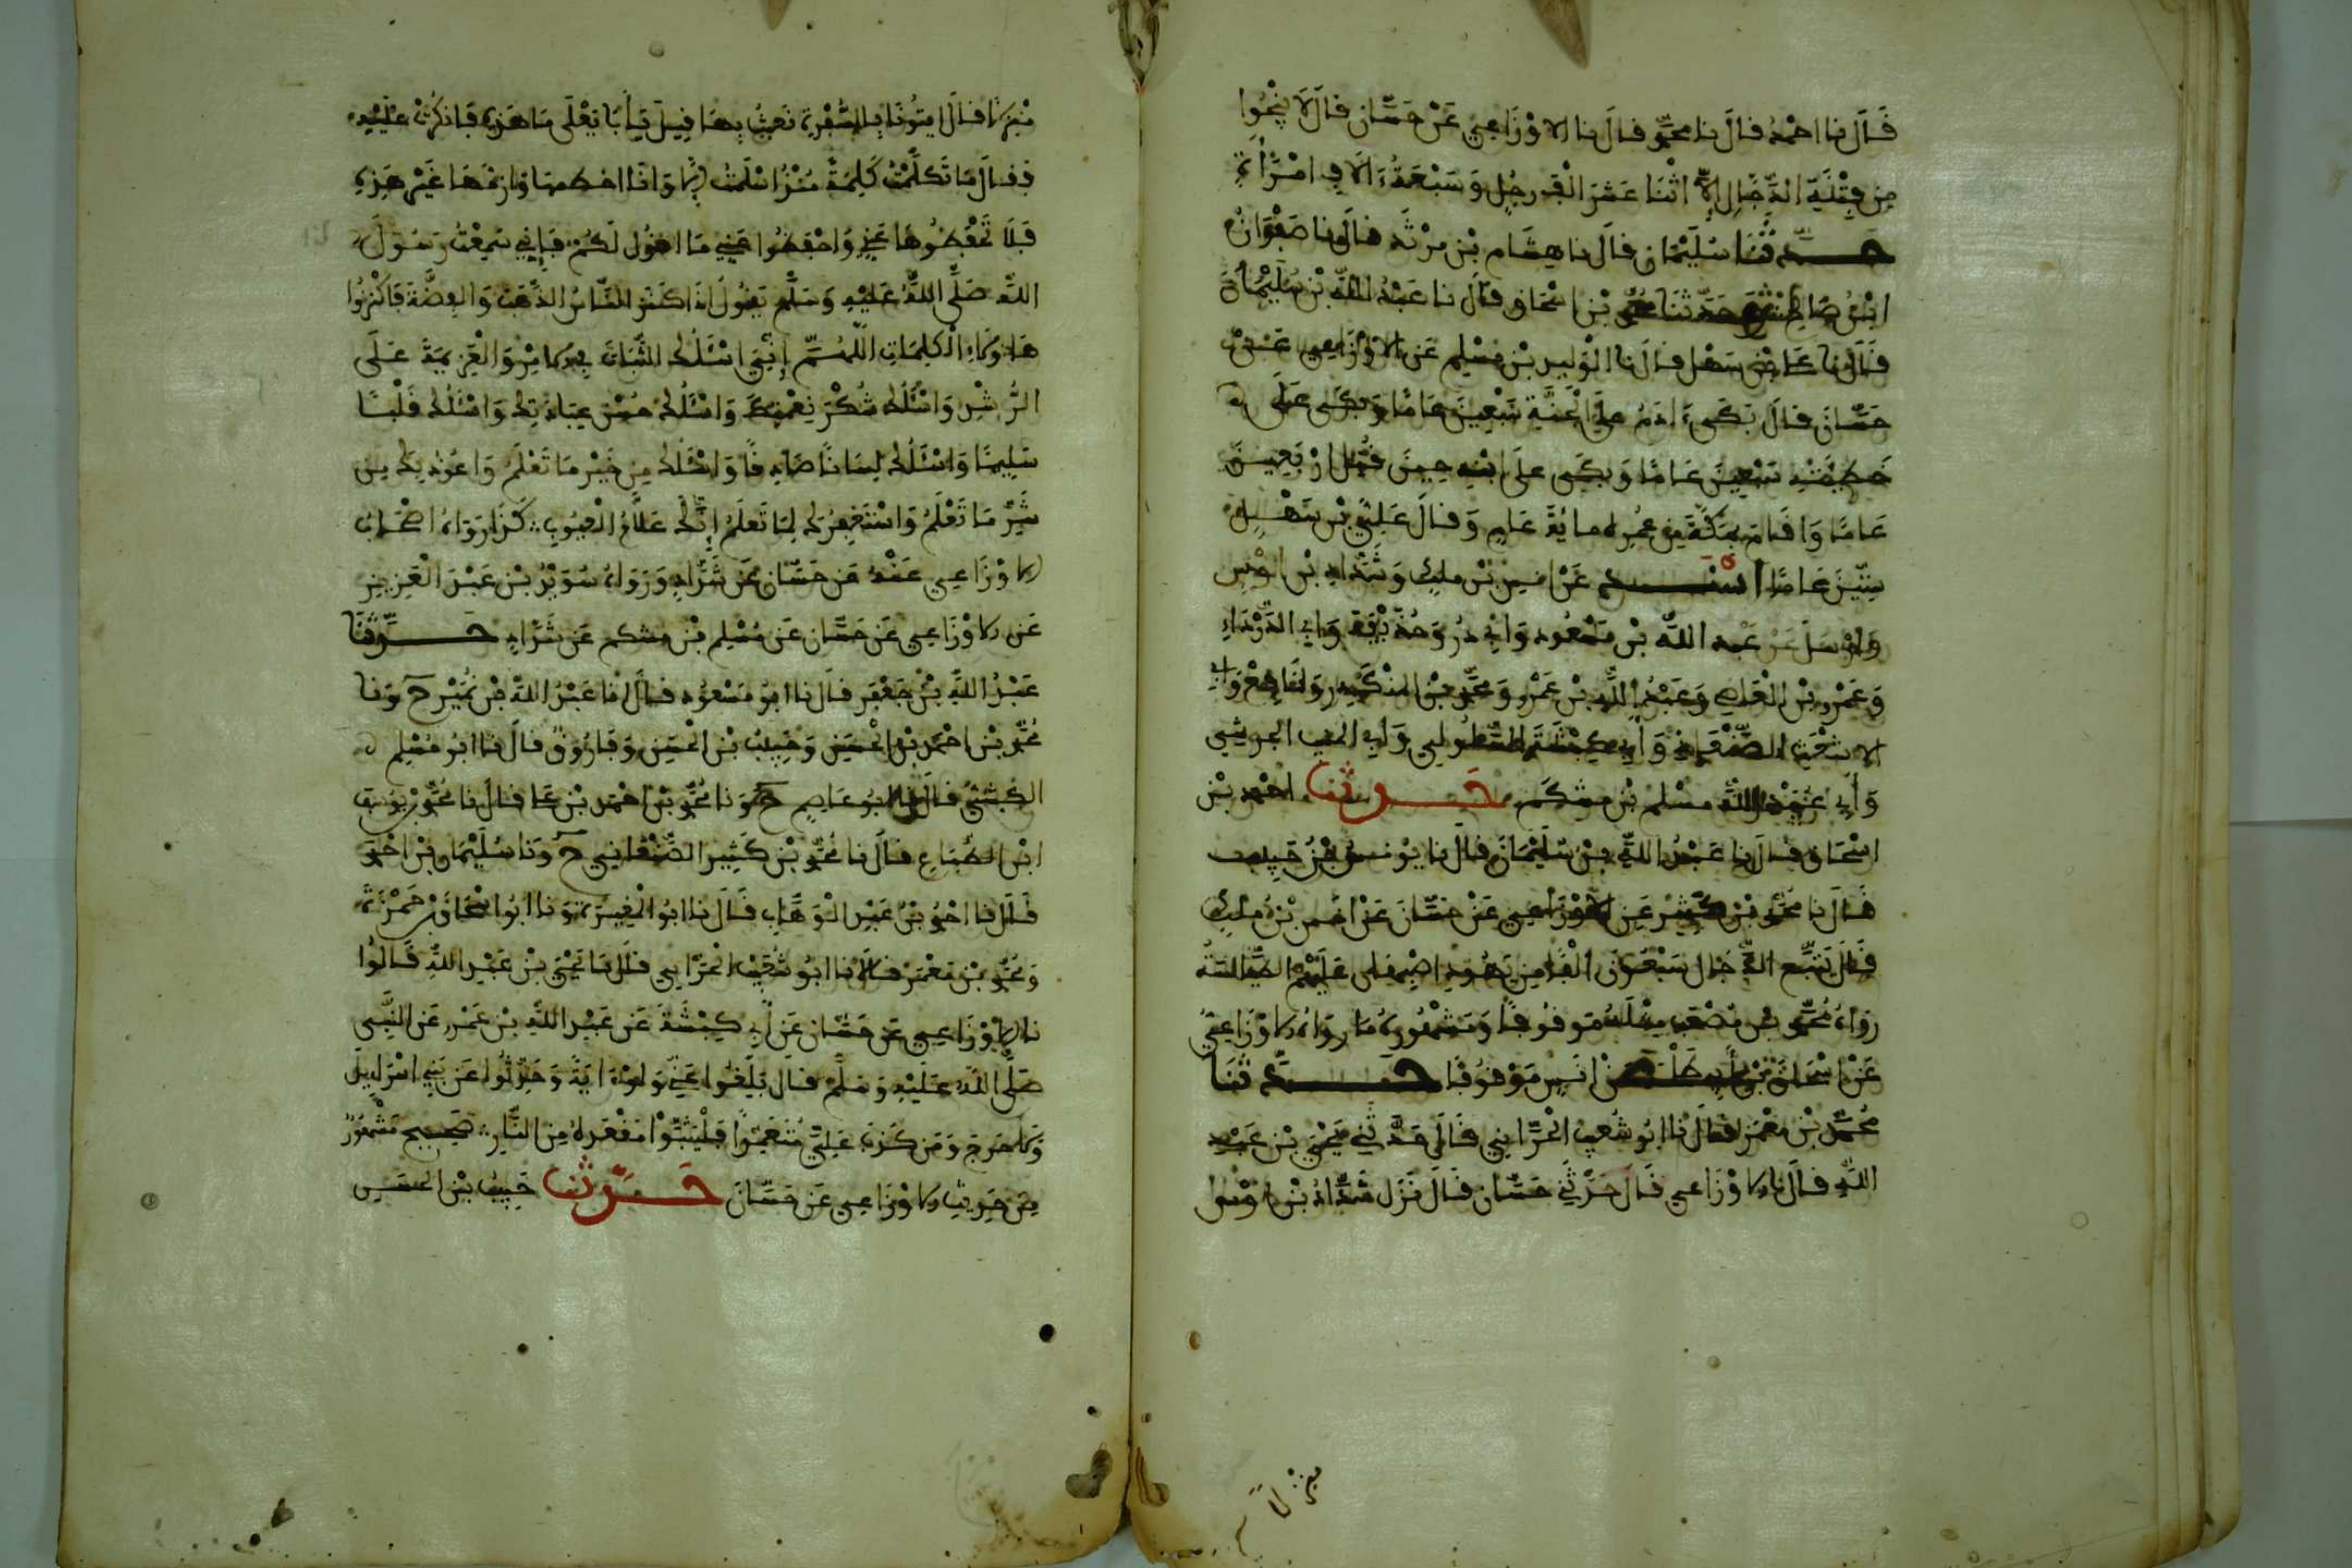 قَالَ نا احْمَدُ قالَ نا محمّد قالَ نا الاوْزَاعِيّ عَنْ حَسَّان قالَ لَا يَنْجُوا
مِن فِتْنَةِ الدَّجَّالِ إِلَّا اثْنَا عَشَرَ الْفَ رجُلٍ وَسَبْعَةُ ءَالَافِ امْرَأةٍ
حَدَّثَنَا سُلَيْمَان قالَ نا هِشَام بْن مرْثَد قالَ نا صَفْوَانُ
ابْنُ صَالِحٍ حَدَّثَنَا محمّد بْن اسْحَاق قالَ نا عَبْدُ اللَّه بْن سُلَيْمَانَ
قَالَ نا سَهْل قالَ نا الْوَلِيد بْن مُسْلِم عَن الاوْزَاعِي عَنْ
حَسَّانَ قالَ بَكَى ءَادَمُ علَى الْجَنَّةِ سَبْعِينَ عَامًا وَبَكَى عَلَى
خَطِيئَتِهِ سَبْعِينَ عَامًا وَبكَى علَى ابْنِهِ حِينَ قُتِلَ ارْبَعِينَ
عَامًا وَاقَامَ بِمَكَّةَ مِن عُمْرِه مايُةَ عَامٍ وَقالَ عَلِيُّ بْن سَهْلٍ
سِتِّينَ عَامًا اسْنَدَ عَنْ انسِ بْن ملِكٍ وَشَدَّادِ بْن اوْسٍ
وَارْسَلَ عَنْ عَبْد اللَّه بْن مَسْعُود وَابِي ذرٍّ وَحُذَيْفَة وَابِي الدَّرْدَاءِ
وَعَمْرو بْن الْعَاصِ وَعَبْدِ اللَّهِ بْن عَمْرٍو وَمحمّد بْن المُنْكَدِر وَنَافِعٍ وَابِي
الاشْعَثِ الصَّنْعَانِي وَأَبِي كَبْشَةَ السَّلُولِي وَابِي
وَأَبِي عُبَيْد اللَّه مسْلم بْن مِشْكَم حَدَّثَنا احْمَد بْن
اسْحَاق قالَ نا عَبْدُ اللَّهِ بْن سُلَيْمَانَ قالَ نا يُونسُ بْنُ حَبِيب
قَالَ نا مُحَمَّد بْن كَثِير عَنِ الاوْزَاعِي عَنْ حَسَّانَ عَنْ انَس بْنُ مَلِكٍ
قالَ يَتْبَع الدَّجَّال سَبْعُونَ أَلْفًا مِن يَهُودِ اصْبِهَان عَلَيْهِمُ الطَّيَالسَةُ
رَوَاهُ مُحَمَّد بْن مُصْعَبٍ مِثْلَهُ مَوْقُوفًا وَمَشْهُورُهُ مَا رَوَاهُ الاوْزَاعِيُّ
عَنْ اسْحَاقَ بْن أَبِي طَلْحَةَ عَنْ انَسٍ مَوْقُوفًا حَدَّثَنَا
مُحَمَّد بْن مَعْمَر قالَ نا ابُو شُعَيْب الْحَرَّانِي قَالَ حَدَّثَنِي يَحْيَى بْن عَبْد
اللَّهِ قالَ نا الاوْزَاعِي قالَ حَدَّثَنِي حَسَّان قالَ نَزَلَ شَدَّادُ بْن اوْسٍ
مَنْزِلًا فَقالَ ايتُونَا بِالسُّفْرَةِ نَعْبَثُ بِهَا قِيلَ يَأَبَا يَعْلَى مَا هَذِهِ فَانكَرْتُ علَيْهِ
فقالَ مَا تَكَلَّمْتُ كَلِمَةً مُنْذُ اسْلَمْتُ الَّا وَانَا اخطمهَا وَازمّهَا غَيْر هَذِهِ
فَلَا تَحْفَظُوهَا عَنِّي وَاحْفَظُوا عَنِّي مَا اقُول لَكُمْ فَإِنِّي سَمِعْتُ رَسُولَ
اللَّه صَلَّى اللَّهُ عَلَيْهِ وَسَلَّمَ يَقُولُ اذَا كَنَزَ النَّاسُ الذَّهَبَ وَالفِضَّةَ فَاكْنِزُوا
هَاؤلَاءِ الْكَلِمَاتِ اللَّهُمَّ إِنِّي اسْئَلُكَ الثَّبَاتَ فِي الامْرِ وَالْعَزِيمَةَ عَلَى
الرُّشْدِ وَاسْئَلُكَ شُكْرَ نِعْمَتِكَ وَاسْئَلُكَ حُسْنَ عِبَادَتِكَ وَاسْئَلُكَ قَلْبًا
سَلِيمًا وَاسْئَلُكَ لِسَانًا صَادِقًا وَاسْئَلُكَ مِن خَيْرِ مَا تَعْلَمُ وَاعُوذُ بِكَ مِن
شَرِّ مَا تَعْلَمُ وَاسْتَغْفِرُكَ لِمَا تَعلَمُ إِنَّكَ عَلَّامُ الْغيُوبِ كَذَا رَوَاهُ اصْحَابُ
الاوْزَاعِي عَنْهُ عَن حَسَّان عَن شَدَّادٍ وَرَوَاهُ سُوَيْدُ بْن عَبْد الْعَزِيزِ
عَن الاوْزَاعِي عَن حَسَّان عَن مُسْلِم بْن مِشكم عَن شَدَّادٍ حَدَّثَنَا
عَبْدُ اللَّهِ بْنُ جَعْفَر قالَ نا ابُو مَسْعُود قالَ انا عَبْدُ اللَّه بْن نُمَيْر ح وَنا
مُحَمَّد بْن احْمَد بْن الْحَسَن وَحَبِيبُ بْن الْحَسَن وَفَارُوقٌ قالَ نا ابُو مُسْلِم
الكَشِّيُّ قالَ نا ابُو عَاصِمٍ ح وَنا مُحَمَّد بْن احْمَد بْن قالَ نا مُحَمَّد بْن يوسُف
ابْن الطَّبَّاعِ قالَ نا مُحَمَّد بْن كَثِير الصَّنْعَانِي ح وَنا سُلَيْمَان بْن احْمَدَ
قالَ نا احْمَدُ بْنُ عَبْدِ الْوَهَّابِ قالَ نا ابُو الْمُغِيرَةِ وَنا ابُو اسْحَاقَ بْن حَمْزَةَ
وَمُحَمَّد بْن مَعْمَر قالَا نا ابُو شُعَيْب الْحَرَّانِي قالَ نا يَحْيَى بْن عَبْدِ اللَّهِ قَالُوا
نا الاوْزَاعِي عَن حَسَّان عَن أَبِي كَبْشَةَ عَن عَبْدِ اللَّهِ بْن عَمْرٍو عَن النَّبِي
صَلَّى اللَّه عَلَيْهِ وَسَلَّمَ قالَ بَلِّغُوا عَنِّي وَلَوْ ءَايَةً وَحَدِّثُوا عَن بَنِي اسْرَاءِيلَ
وَلَا حَرجَ وَمَن كَذَبَ عَلَيَّ مُتَعَمِّدًا فَلْيَتَبَوَّأْ مَقْعَدَهُ مِنَ النَّارِ صَحِيح مَشْهُورٌ
مِن حَدِيثِ الاوْزَاعِي عَن حَسَّانَ حَدَّثَنا حَبِيبُ بْن الحَسَن